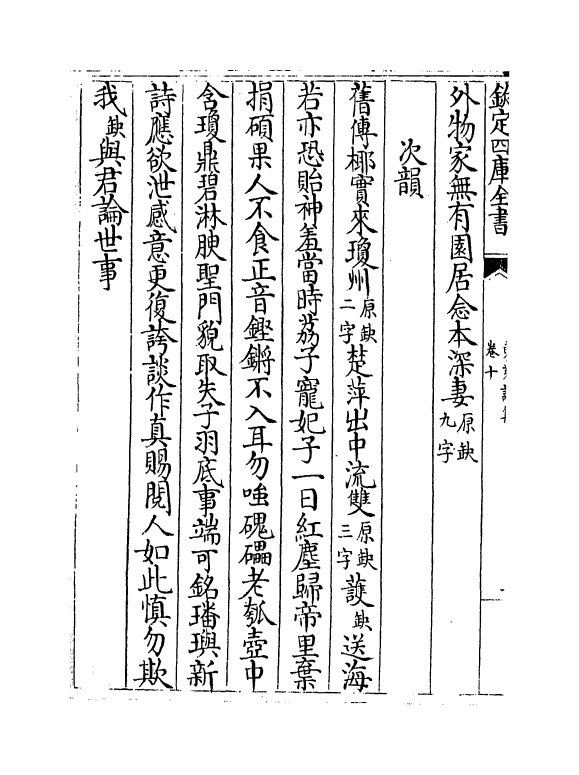 欽定四庫全書
卷十
外物家無有園居念本深妻原缺九字
次韻
舊傳椰實來瓊州原缺二字楚萍出中流雙原缺三字護缺送海
若亦恐貽神羞當時荔子寵妃子一日紅塵歸帝里棄
捐碩果人不食正音鏗鏘不入耳勿嗤磈礧老瓠壺中
含瓊鼎碧淋腴聖門貌取失子羽底事端可銘璠璵新
詩應欲泄感意更復誇談作真賜閱人如此慎勿欺
我缺與君論世事